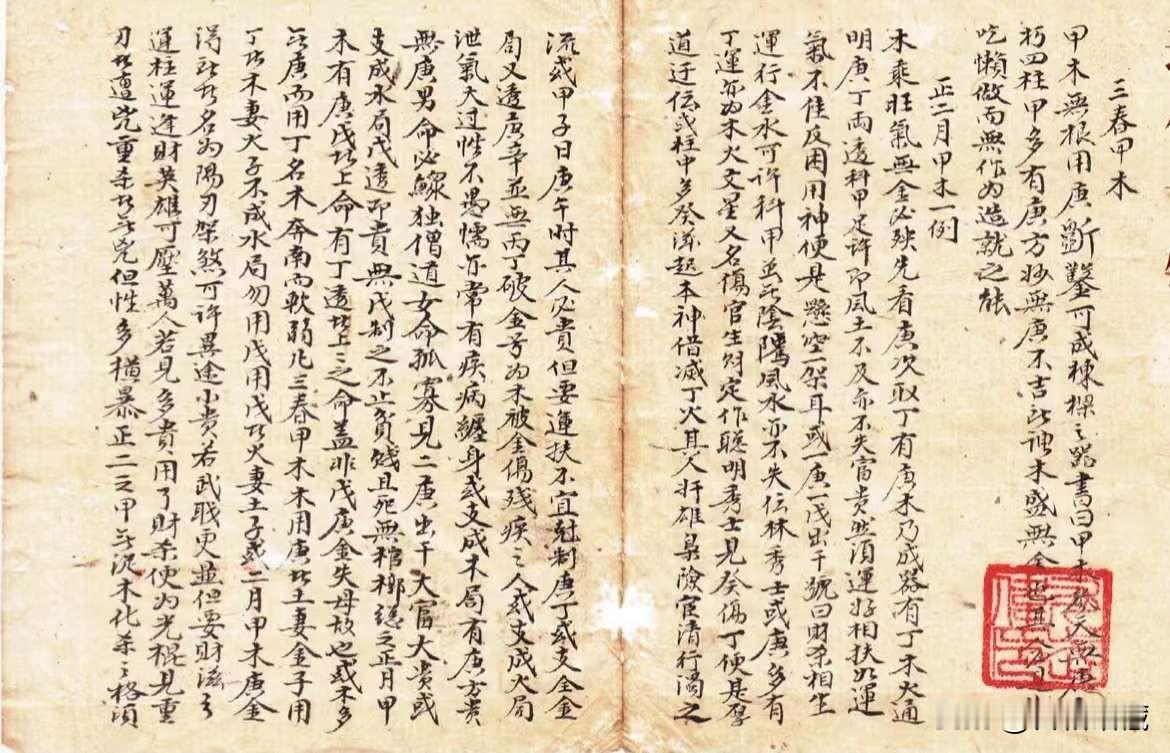 三春甲木
甲木無根用庚斲鑿可成棟樑之器書曰甲木
朽四柱甲多有庚方妙無庚不吉此神木盛無金
吃懶做而無作为造就之能
正二月甲木一例
木乘旺氣無金必殃先看庚次取丁有庚木乃成器有丁木火通
明庚丁兩透科甲足許即風土不及亦不失富贵然須運好相扶如運
氣不佳反困用神便是懸空一架耳或一庚一戊出干號曰財杀相生
運行金水可許科甲並無陰騭風水亦不失伝林秀士或庚多有
丁運亦为木火文星又名傷官生财定作聰明秀士見癸傷丁便是厚
道迂伝或柱中多癸滋起本神借滅丁火其人奸雄梟險宦清行濁之
流或甲子日庚午时其人必貴但要運扶不宜尅制庚丁或支金金
局又透庚辛並無丙丁破金号为木被金傷残疾之人或支成火局
泄氣太过性不愚懦亦常有疾病纏身或支成木局有庚方贵
無庚男命必鰥独僧道女命孤寡見二庚出干大富大贵或
支成水局戊透即貴無戊制之不止貧贱且死無棺槨總之正月甲
木有庚戊此上命有丁透此上之命盖非戊庚金失母故也或木多
無庚而用丁名木奔南而軟弱凡三春甲木木用庚此土妻金子用
丁此木妻火子不成水局勿用戊用戊此火妻土子或二月甲木庚金
得此名为陽刃架煞可許異途小貴若武職更並但要財滋之
運柱運逢财英雄可壓萬人若見多貴用了财杀便为光棍見重
刃此遭凶重杀此無兇但性多橫暴正二之甲無泥木化杀之格須